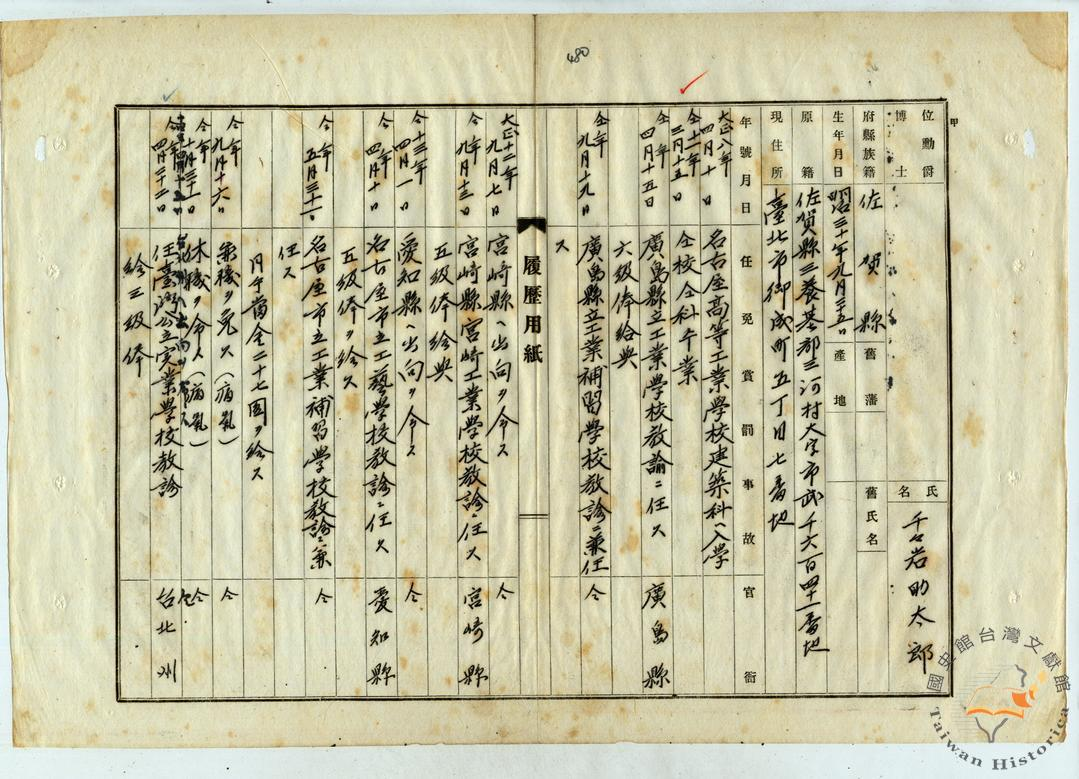 480
甲
位勳爵
博士
氏名
千々岩助太郎
府縣族籍
佐賀縣
舊藩
舊氏名
生年月日
明治三十年九月三十五日
產地
原籍
佐賀縣三養基郡三河村大字市武千六百四十一番地
現住所
臺北市御成町五丁目七番地
年號月日
任免賞罰事故
官衙
大正八年四月十日
名古屋高等工業學校建築科ヘ入學
仝十一年三月十五日
仝校仝科卒業
仝年四月十五日
廣島縣立工業學校敎諭ニ任ス
廣島縣
六級俸給與
仝年九月十九日
廣島縣立工業補習學校敎諭ニ兼任ス
仝
履歷用紙
大正十二年九月七日
宮崎縣ヘ出向ヲ命ス
仝
仝年九月十三日
宮崎縣宮崎工業學校敎諭ニ任ス
宮崎縣
五級俸給與
仝十三年四月一日
愛知縣ヘ出向ヲ命ス
仝
仝年四月十日
名古屋市立工藝學校敎諭ニ任ス
愛知縣
五級俸ヲ給ス
仝年五月三十一日
名古屋市立工業補習學校敎諭ニ兼任ス
仝
月手當金二十七圓ヲ給ス
仝年九月十六日
兼職ヲ免ス(病氣)
仝
仝年十月三十一日
休職ヲ命ス(病氣)
仝
仝年四月二十二日
任臺灣公立實業學校敎諭
台北州
給三級俸
國史館台灣文獻館
Taiwan Historica